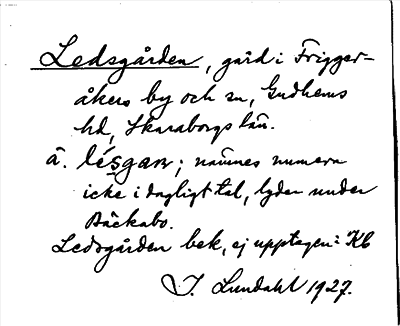 Ledsgården, gård i Frigger-
åkers by och sn, Gudhems
hd, Skaraborgs län.
ä. lésgaɳ; nämnes numera
icke i dagligt tal, lyder under
Bäckabo.
Ledsgården bek, ej upptagen i Kb
J. Lundahl 1927.